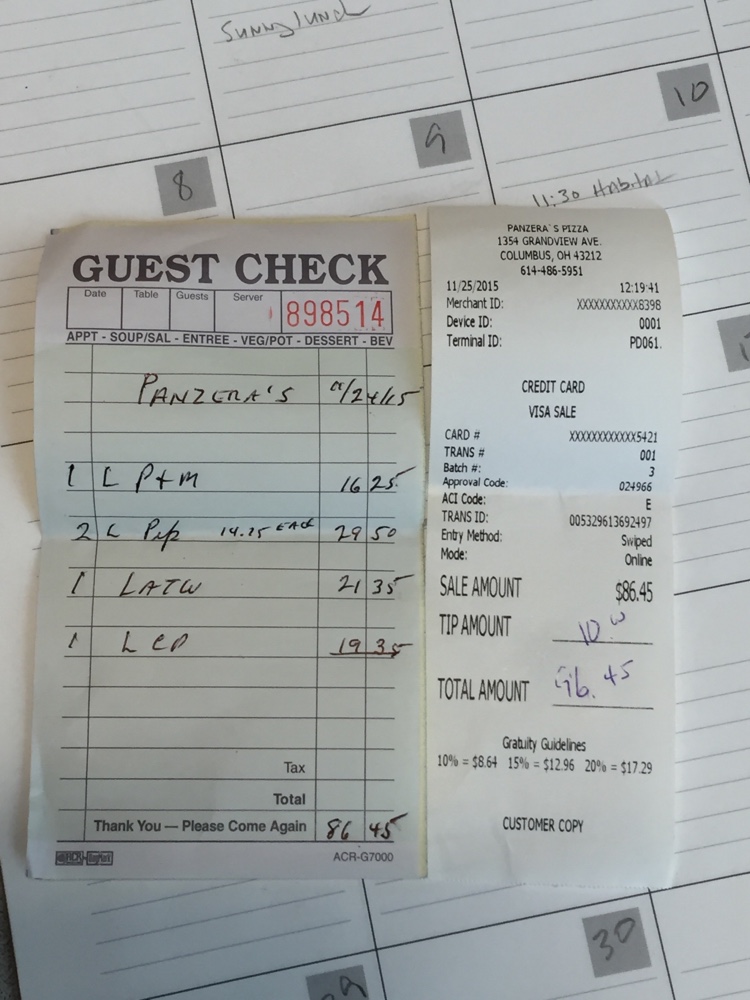 Sunnylund
8
9
10
11:30
GUEST CHECK
Date Table Guests Server
898514
APPT - SOUP/SAL - ENTREE - VEG/POT - DESSERT - BEV
PANZERA'S 11/24/15
1 L P+M 16 25
2 L Pep 14.75 EACH 29 50
1 LATW 21 35
1 L CP 19 35
Tax
Total
Thank You — Please Come Again 86 45
ACR-G7000
PANZERA'S PIZZA
1354 GRANDVIEW AVE.
COLUMBUS, OH 43212
614-486-5951
11/25/2015 12:19:41
Merchant ID: XXXXXXXXXXX8398
Device ID: 0001
Terminal ID: PD061.
CREDIT CARD
VISA SALE
CARD # XXXXXXXXXXXX5421
TRANS # 001
Batch #: 3
Approval Code: 024966
ACI Code: E
TRANS ID: 005329613692497
Entry Method: Swiped
Mode: Online
SALE AMOUNT $86.45
TIP AMOUNT 10.00
TOTAL AMOUNT 96.45
Gratuity Guidelines
10% = $8.64 15% = $12.96 20% = $17.29
CUSTOMER COPY
29
30